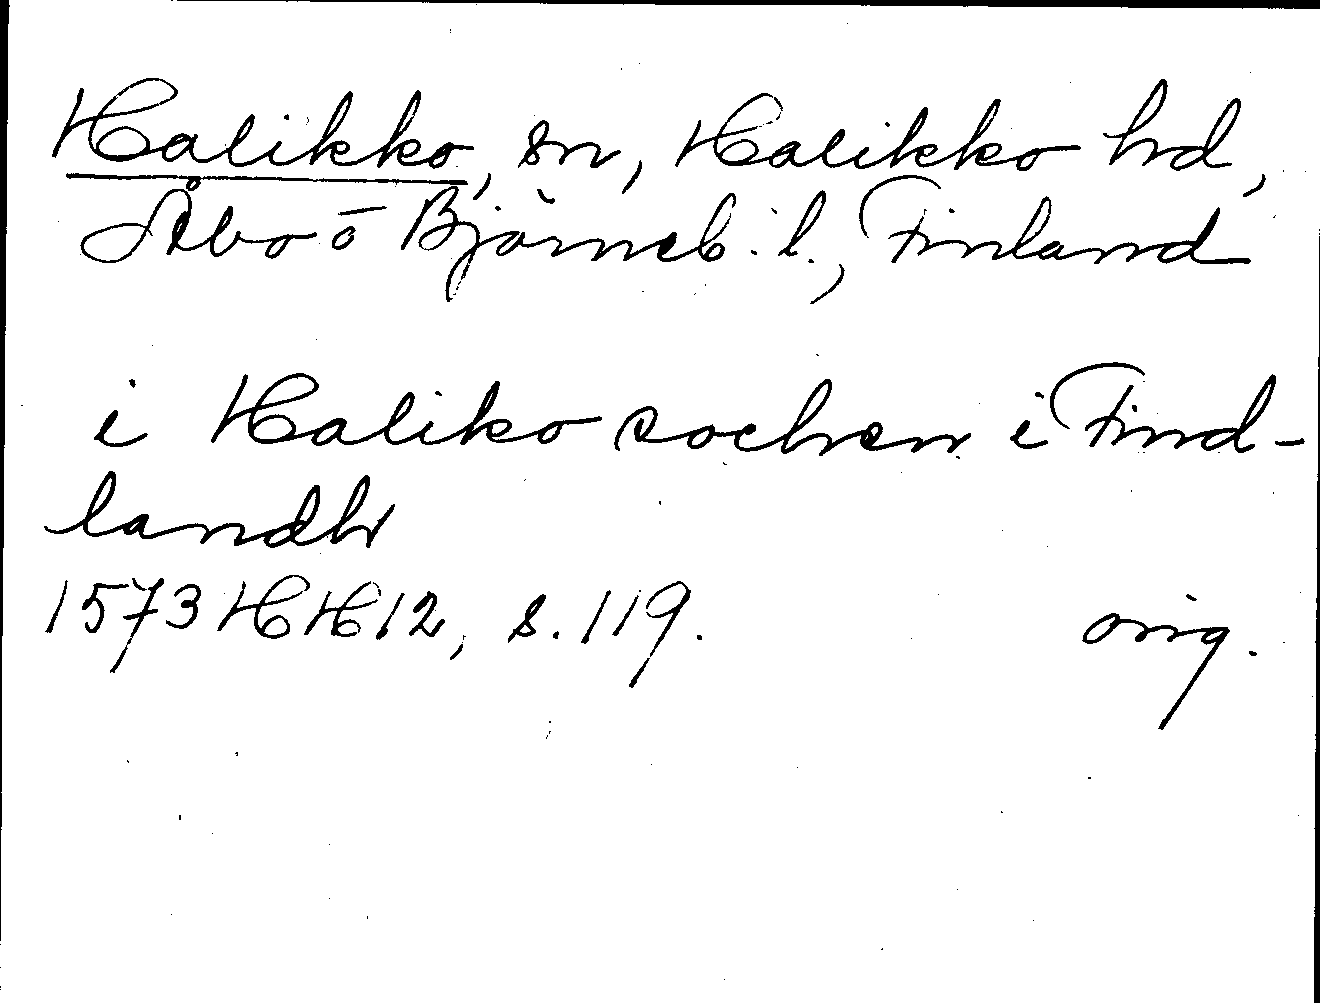 Halikko, sn, Halikko hd,
Åbo o Björneb. l., Finland
i Haliko sochen i Find-
landh
1573 HH12, s. 119. orig.